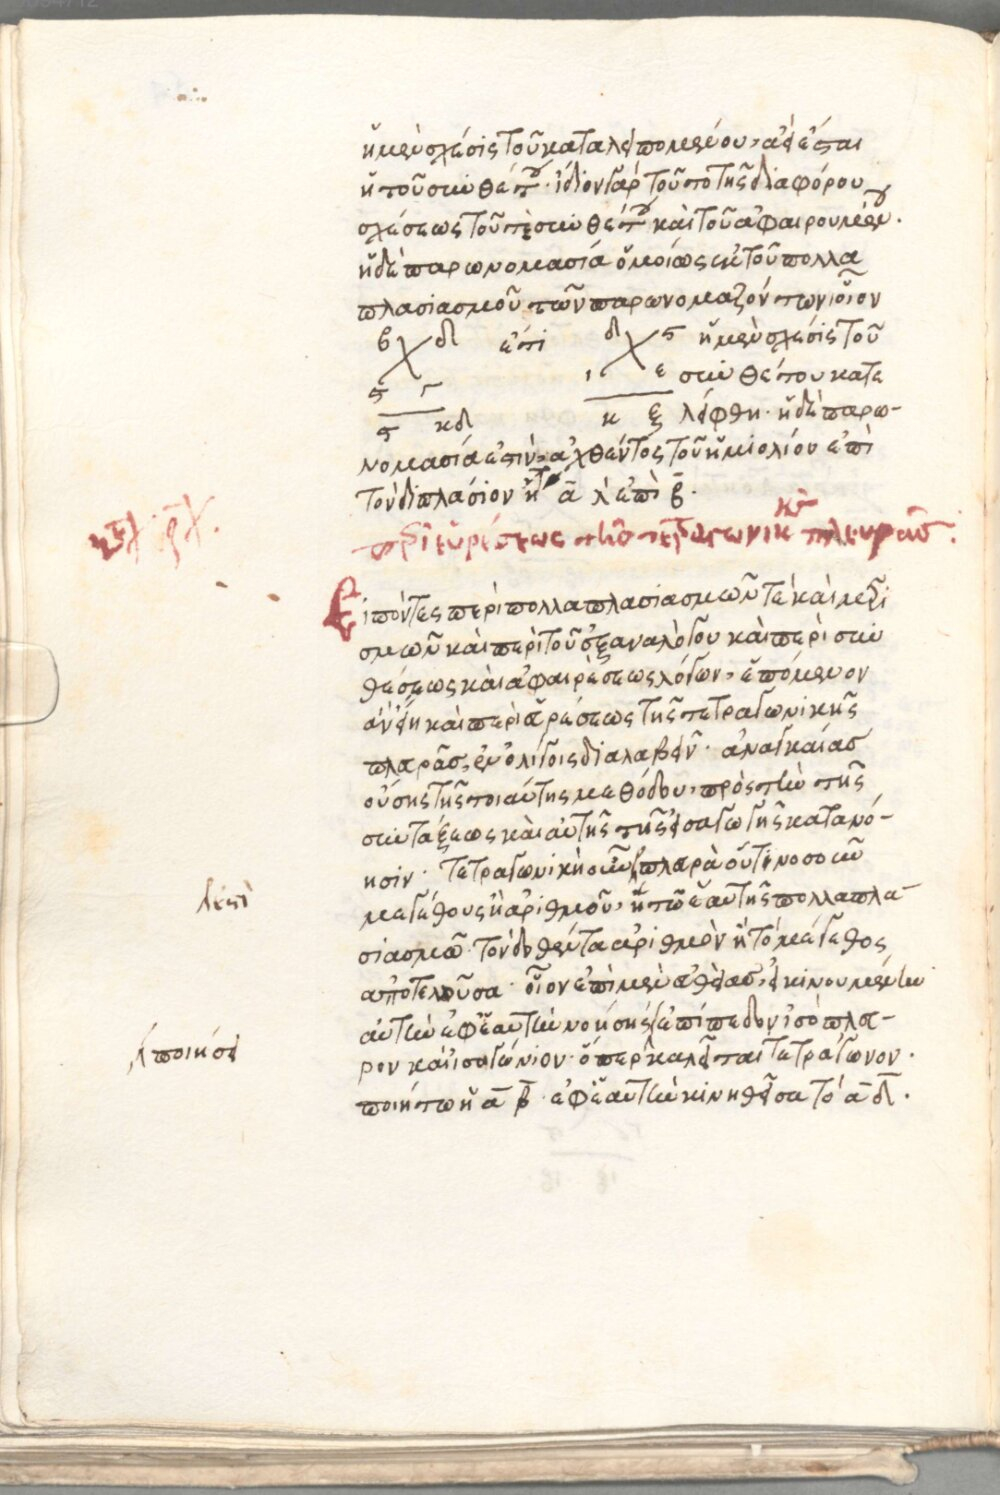 ἡ μὲν σχέσις τοῦ καταλειπομένου, ἀεὶ ἔσται
ἢ τοῦ συνθέτου. ἴδιον γὰρ τοῦτο τῆς διαφόρου
σχέσεως τοῦ τε συνθέτου καὶ τοῦ ἀφαιρουμένου.
ἡ δὲ παρωνομασία ὁμοίως ἐκ τοῦ πολλα
πλασιασμοῦ τῶν παρωνομαζόντων οἷον
β δ ἐπὶ δ ϛ ἡ μὲν σχέσις τοῦ
ε συνθέτου κατε
ϛ κδ κ ξ λείφθη. ἡ δὲ παρω-
νομασία ἐστὶν, ἀχθέντος τοῦ ἡμιολίου ἐπὶ
τὸν διπλάσιον ἤτοι α ἐπὶ β.
περὶ εὑρέσεως τῆς τετραγωνικῆς πλευρᾶς.
Εἰπόντες περὶ πολλαπλασιασμῶν τὲ καὶ μερι
σμῶν καὶ περὶ τοῦ ἐξ ἀναλόγου καὶ περὶ συν
θέσεως καὶ ἀφαιρέσεως λόγων, ἑπόμενον
ἂν εἴη καὶ περὶ εὑρέσεως τῆς τετραγωνικῆς
πλευρᾶς, ἐν ὀλίγοις διαλαβεῖν. ἀναγκαίας
οὔσης τῆς τοιαύτης μεθόδου, πρὸς τὴν τῆς
συντάξεως καὶ αὐτῆς τῆς εἰσαγωγῆς κατανό-
ησιν. Τετραγωνικὴ οὖν πλευρὰ οὗτινοσοῦν
μεγέθους ἢ ἀριθμοῦ, ἡ τῷ ἑαυτῆς πολλαπλα-
σιασμῷ τὸν δοθέντα ἀριθμὸν ἢ τὸ μέγεθος
ἀποτελοῦσα. οἷον ἐπὶ μὲν εὐθείας, εἰ κινουμένην
αὐτὴν ἐφ' ἑαυτὴν νοήσεις ἐπίπεδον ἰσόπλευ-
ρον καὶ ἰσογώνιον. ὅπερ καλεῖται τετράγωνον.
ποιείτω ἡ α β. ἐφ' ἑαυτὴν κινηθεῖσα τὸ α δ.
ποιήσει